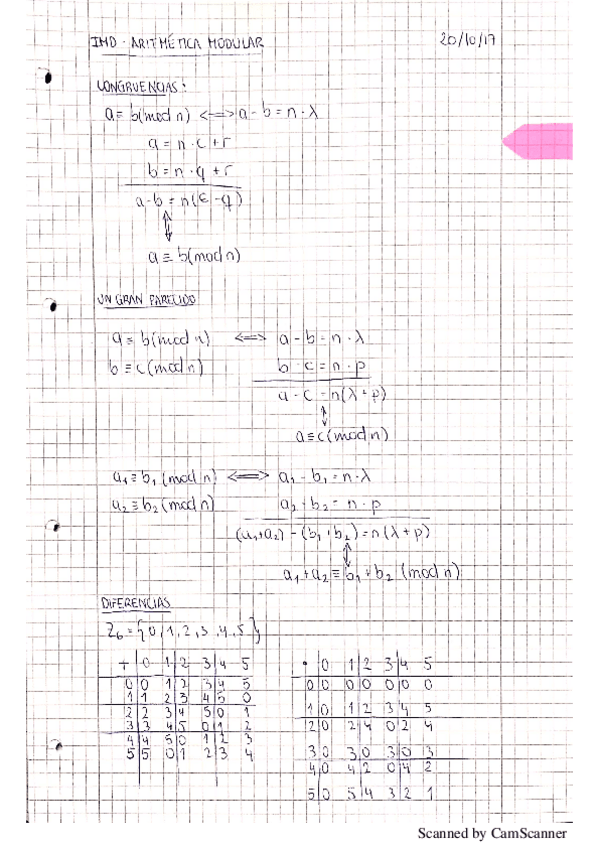 IMD · ARITMÉTICA MODULAR 20/10/17
CONGRUENCIAS:
a ≡ b(mod n) <=> a - b = n · λ
a = n · c + r
b = n · q + r
a-b = n(c - q)
a ≡ b(mod n)
UN GRAN PARECIDO
a ≡ b(mod n) <=> a - b = n · λ
b ≡ c(mod n) b - c = n · p
a - c = n(λ + p)
a ≡ c(mod n)
a₁ ≡ b₁ (mod n) <=> a₁ - b₁ = n · λ
a₂ ≡ b₂ (mod n) a₂ - b₂ = n · p
(a₁+a₂) - (b₁+b₂) = n(λ + p)
a₁+a₂ ≡ b₁+b₂ (mod n)
DIFERENCIAS
Z₆ = {0,1,2,3,4,5}
+ 0 1 2 3 4 5 · 0 1 2 3 4 5
0 0 1 2 3 4 5 0 0 0 0 0 0 0
1 1 2 3 4 5 0 1 0 1 2 3 4 5
2 2 3 4 5 0 1 2 0 2 4 0 2 4
3 3 4 5 0 1 2 3 0 3 0 3 0 3
4 4 5 0 1 2 3 4 0 4 2 0 4 2
5 5 0 1 2 3 4 5 0 5 4 3 2 1
Scanned by CamScanner